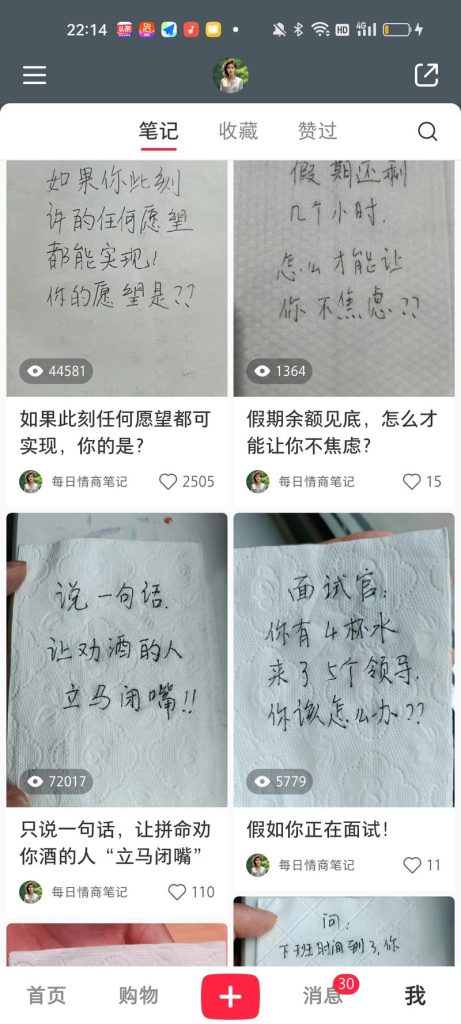 22:14
HD 4G
笔记 收藏 赞过
如果你此刻
许的任何愿望
都能实现!
你的愿望是??
44581
如果此刻任何愿望都可
实现，你的是？
每日情商笔记 2505
假期还剩
几个小时.
怎么才能让
你不焦虑??
1364
假期余额见底，怎么才
能让你不焦虑？
每日情商笔记 15
说一句话.
让劝酒的人
立马闭嘴!!
72017
只说一句话，让拼命劝
你酒的人“立马闭嘴”
每日情商笔记 110
面试官:
你有4杯水
来了5个领导.
你该怎么办??
5779
假如你正在面试！
每日情商笔记 11
问:
下班时间到了,你
首页 购物 消息 30 我